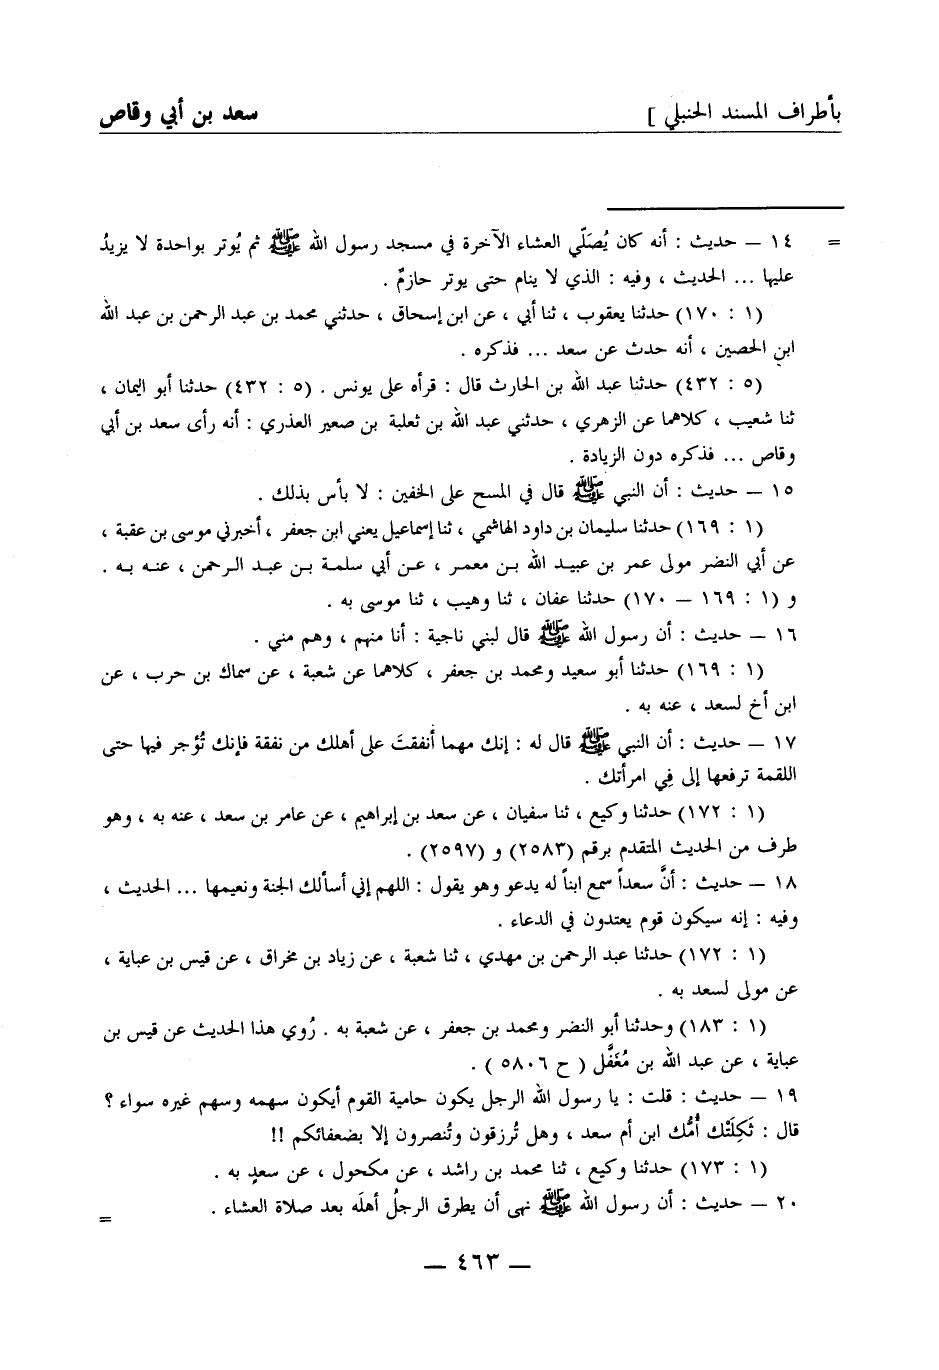 بأطراف المسند الحنبلي ]
سعد بن أبي وقاص
= ١٤ — حديث : أنه كان يُصَلّي العشاء الآخرة في مسجد رسول الله ﷺ ثم يُوتر بواحدة لا يزيدُ
عليها ... الحديث ، وفيه : الذي لا ينام حتى يوتر حازمٌ .
(١ : ١٧٠) حدثنا يعقوب ، ثنا أبي ، عن ابن إسحاق ، حدثني محمد بن عبد الرحمن بن عبد الله
ابن الحصين ، أنه حدث عن سعد ... فذكره .
(٥ : ٤٣٢) حدثنا عبد الله بن الحارث قال : قرأه على يونس . (٥ : ٤٣٢) حدثنا أبو اليمان ،
ثنا شعيب ، كلاهما عن الزهري ، حدثني عبد الله بن ثعلبة بن صعير العذري : أنه رأى سعد بن أبي
وقاص ... فذكره دون الزيادة .
١٥ — حديث : أن النبي ﷺ قال في المسح على الخفين : لا بأس بذلك .
(١ : ١٦٩) حدثنا سليمان بن داود الهاشمي ، ثنا إسماعيل يعني ابن جعفر ، أخبرني موسى بن عقبة ،
عن أبي النضر مولى عمر بن عبيد الله بن معمر ، عن أبي سلمة بن عبد الرحمن ، عنه به .
و (١ : ١٦٩ — ١٧٠) حدثنا عفان ، ثنا وهيب ، ثنا موسى به .
١٦ — حديث : أن رسول الله ﷺ قال لبني ناجية : أنا منهم ، وهم مني .
(١ : ١٦٩) حدثنا أبو سعيد ومحمد بن جعفر ، كلاهما عن شعبة ، عن سماك بن حرب ، عن
ابن أخ لسعد ، عنه به .
١٧ — حديث : أن النبي ﷺ قال له : إنك مهما أنفقتَ على أهلك من نفقة فإنك تُؤجر فيها حتى
اللقمة ترفعها إلى فِي امرأتك .
(١ : ١٧٢) حدثنا وكيع ، ثنا سفيان ، عن سعد بن إبراهيم ، عن عامر بن سعد ، عنه به ، وهو
طرف من الحديث المتقدم برقم (٢٥٨٣) و (٢٥٩٧) .
١٨ — حديث : أنَّ سعداً سمع ابناً له يدعو وهو يقول : اللهم إني أسألك الجنة ونعيمها ... الحديث ،
وفيه : إنه سيكون قوم يعتدون في الدعاء .
(١ : ١٧٢) حدثنا عبد الرحمن بن مهدي ، ثنا شعبة ، عن زياد بن مخراق ، عن قيس بن عباية ،
عن مولى لسعد به .
(١ : ١٨٣) وحدثنا أبو النضر ومحمد بن جعفر ، عن شعبة به . رُوي هذا الحديث عن قيس بن
عباية ، عن عبد الله بن مُغَفَّل ( ح ٥٨٠٦ ) .
١٩ — حديث : قلت : يا رسول الله الرجل يكون حامية القوم أيكون سهمه وسهم غيره سواء ؟
قال : ثَكِلَتْك أُمُّك ابن أم سعد ، وهل تُرزقون وتُنصرون إلا بضعفائكم !!
(١ : ١٧٣) حدثنا وكيع ، ثنا محمد بن راشد ، عن مكحول ، عن سعدٍ به .
٢٠ — حديث : أن رسول الله ﷺ نهى أن يطرق الرجلُ أهلَه بعد صلاة العشاء . =
— ٤٦٣ —